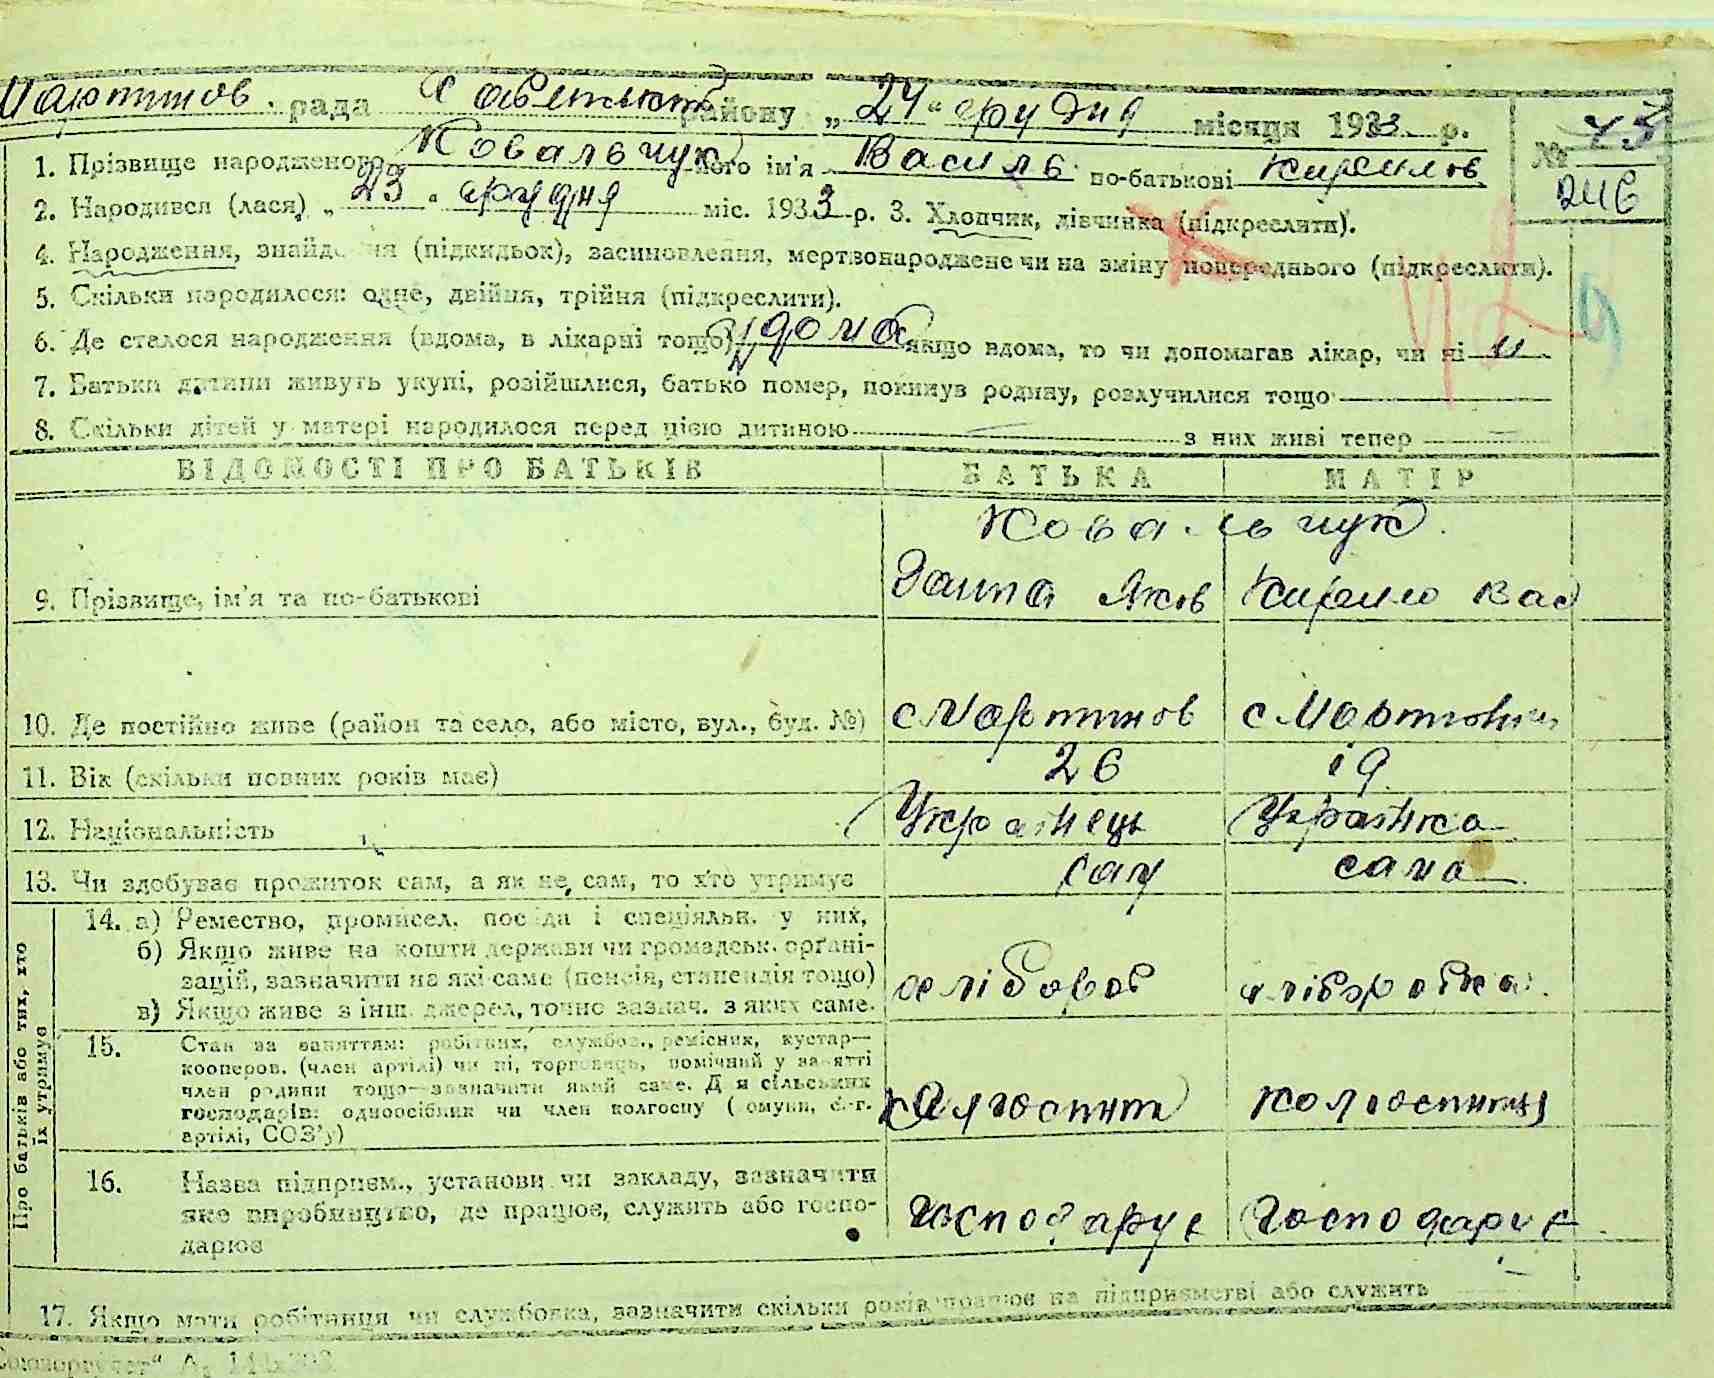 Мартинов. рада районy „24“ грудня місяця 1933 р.
№ 75
246
1. Прізвище народженого Ковальчук його ім'я Василь по-батькові Кирилов
2. Народився (лася) „23“ грудня міс. 1933 р. 3. Хлопчик, дівчинка (підкреслити).
4. Народження, знайдення (підкидьок), засиновлення, мертвонароджене чи на зміну попереднього (підкреслити).
5. Скільки народилося: одне, двійня, трійня (підкреслити).
6. Де сталося народження (вдома, в лікарні тощо) удома якщо вдома, то чи допомагав лікар, чи ні
7. Батьки дитини живуть укупі, розійшлися, батько помер, покинув родину, розлучилися тощо
8. Скільки дітей у матері народилося перед цією дитиною — з них живі тепер —
ВІДОМОСТІ ПРО БАТЬКІВ БАТЬКА МАТІР
Ковальчук.
9. Прізвище, ім'я та по-батькові Ганна Яков Кирило Вас
10. Де постійно живе (район та село, або місто, вул., буд. №) с Мартинов с
11. Вік (скільки повних років має) 26 19
12. Національність Українець Українка
13. Чи здобуває прожиток сам, а як не сам, то хто утримує сам сама
Про батьків або тих, хто їх утримує
14. а) Ремество, промисел, посада і спеціяльн. у них,
б) Якщо живе на кошти держави чи громадськ. орґані-
зацій, зазначити на які саме (пенсія, стипендія тощо) хлібороб хліборобка
в) Якщо живе з інш. джерел, точно зазнач. з яких саме.
15. Стан за заняттям: робітник, службов., ремісник, кустар—
кооперов. (член артілі) чи ні, торговець, помічний у занятті
член родини тощо—зазначити який саме. Для сільських
господарів: одноосібник чи член колгоспу (комуни, с.-г.
артілі, СОЗ'у) колгоспник колгоспниця
16. Назва підприєм., установи чи закладу, зазначити
яке виробництво, де працює, служить або госпо-
дарює господарує господарує
17. Якщо мати робітниця чи службовка, зазначити скільки років працює на підприємстві або служить